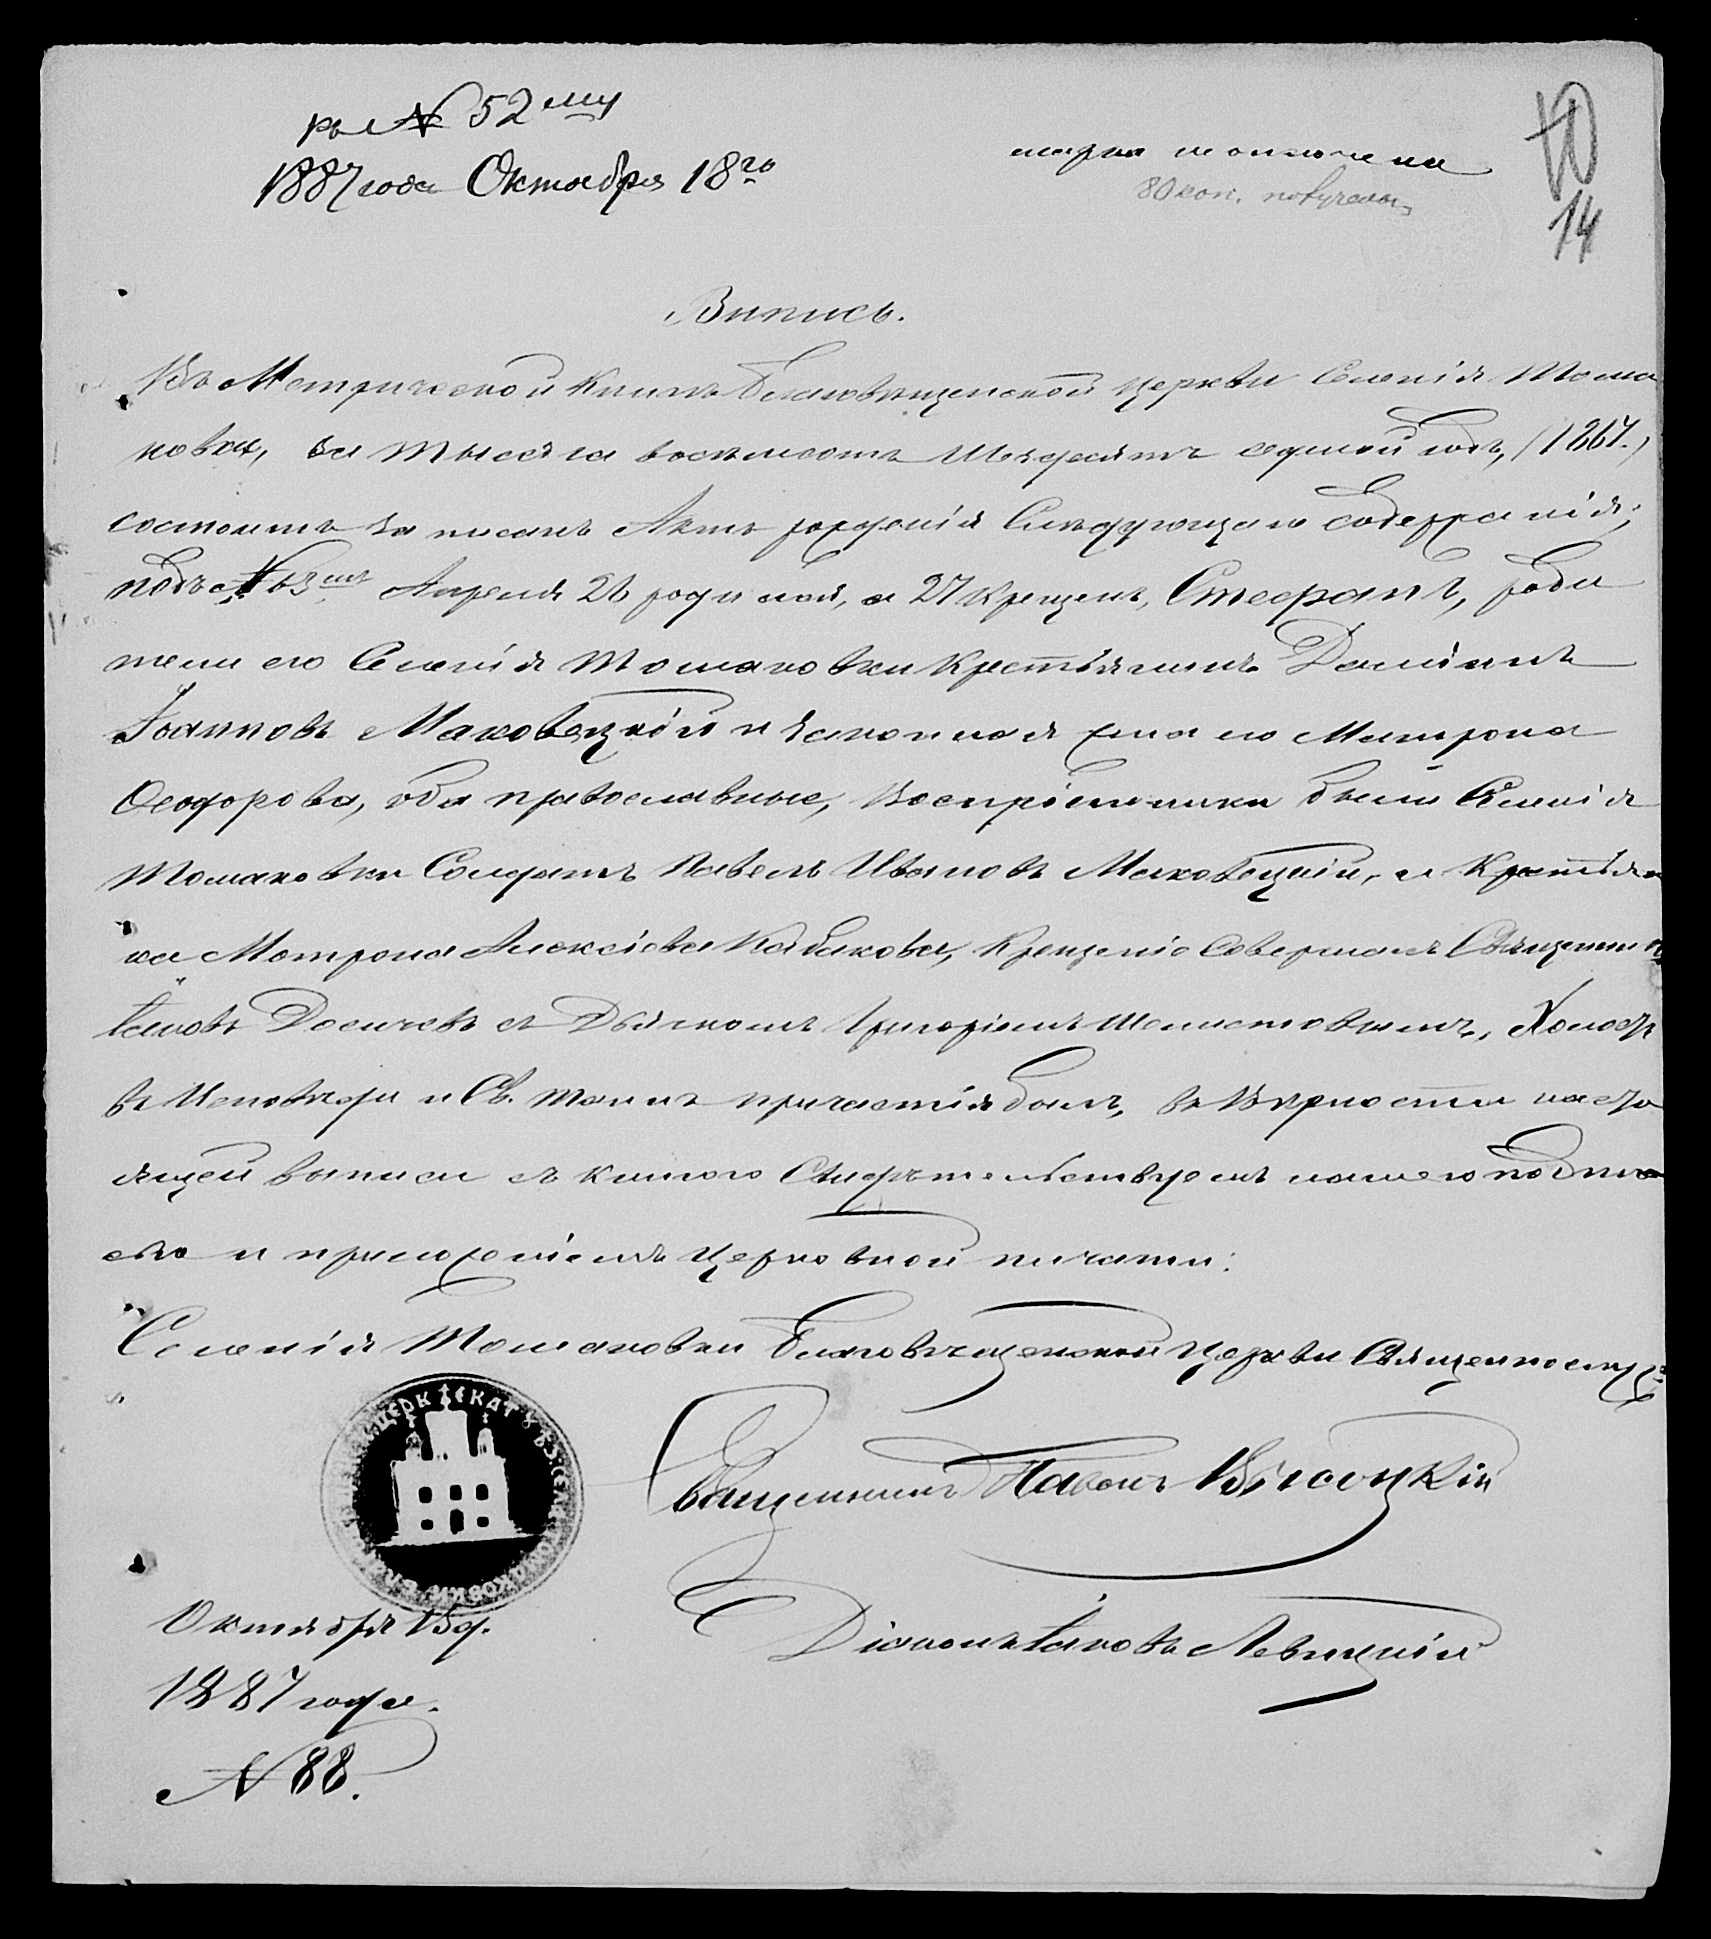 къ № 52му
1887 года Октября 18го
марка не оплочена
80 коп. получены
10
14
Випись.
Въ Метрической книгѣ Благовѣщенской церкви Селенія Тома
ковки, за тысяча восемсотъ шездесятъ седмой годъ, (1867.)
состоитъ записанъ Актъ рожденія Слѣдующаго содержанія;
подъ № 63мъ Апреля 26 родился, а 27 крещенъ, Стефанъ, роди
тели его Селенія Томаковки Крестьянинъ Даміанъ
Іоанновъ Маковецкій и законная жена его Матрона
Феодорова, оба православные, Воспріемники были Селенія
Томаковки Солдатъ Павелъ Ивановъ Маковецкій, и Крестьян
ка Матрона Алексіева Кабакова, Крещеніе Совершалъ Священникъ
Іаковъ Досичевъ съ Дьякономъ Григоріемъ
въ Исповѣди и Св. таинъ причастія былъ, въ Вѣрности насто
ящей выписи съ книгою Свидѣтельствуемъ нашею подпи
сью и приложеніемъ Церковной печати:
Селенія Томаковки Благовѣщенской Церкви Священнослуж.
ЦЕРК. ЕКАТ. У
Священникъ Павелъ Высоцкій
Діаконъ Іаковъ Левицкій
Октября 15 д.
1887 года.
№ 88.